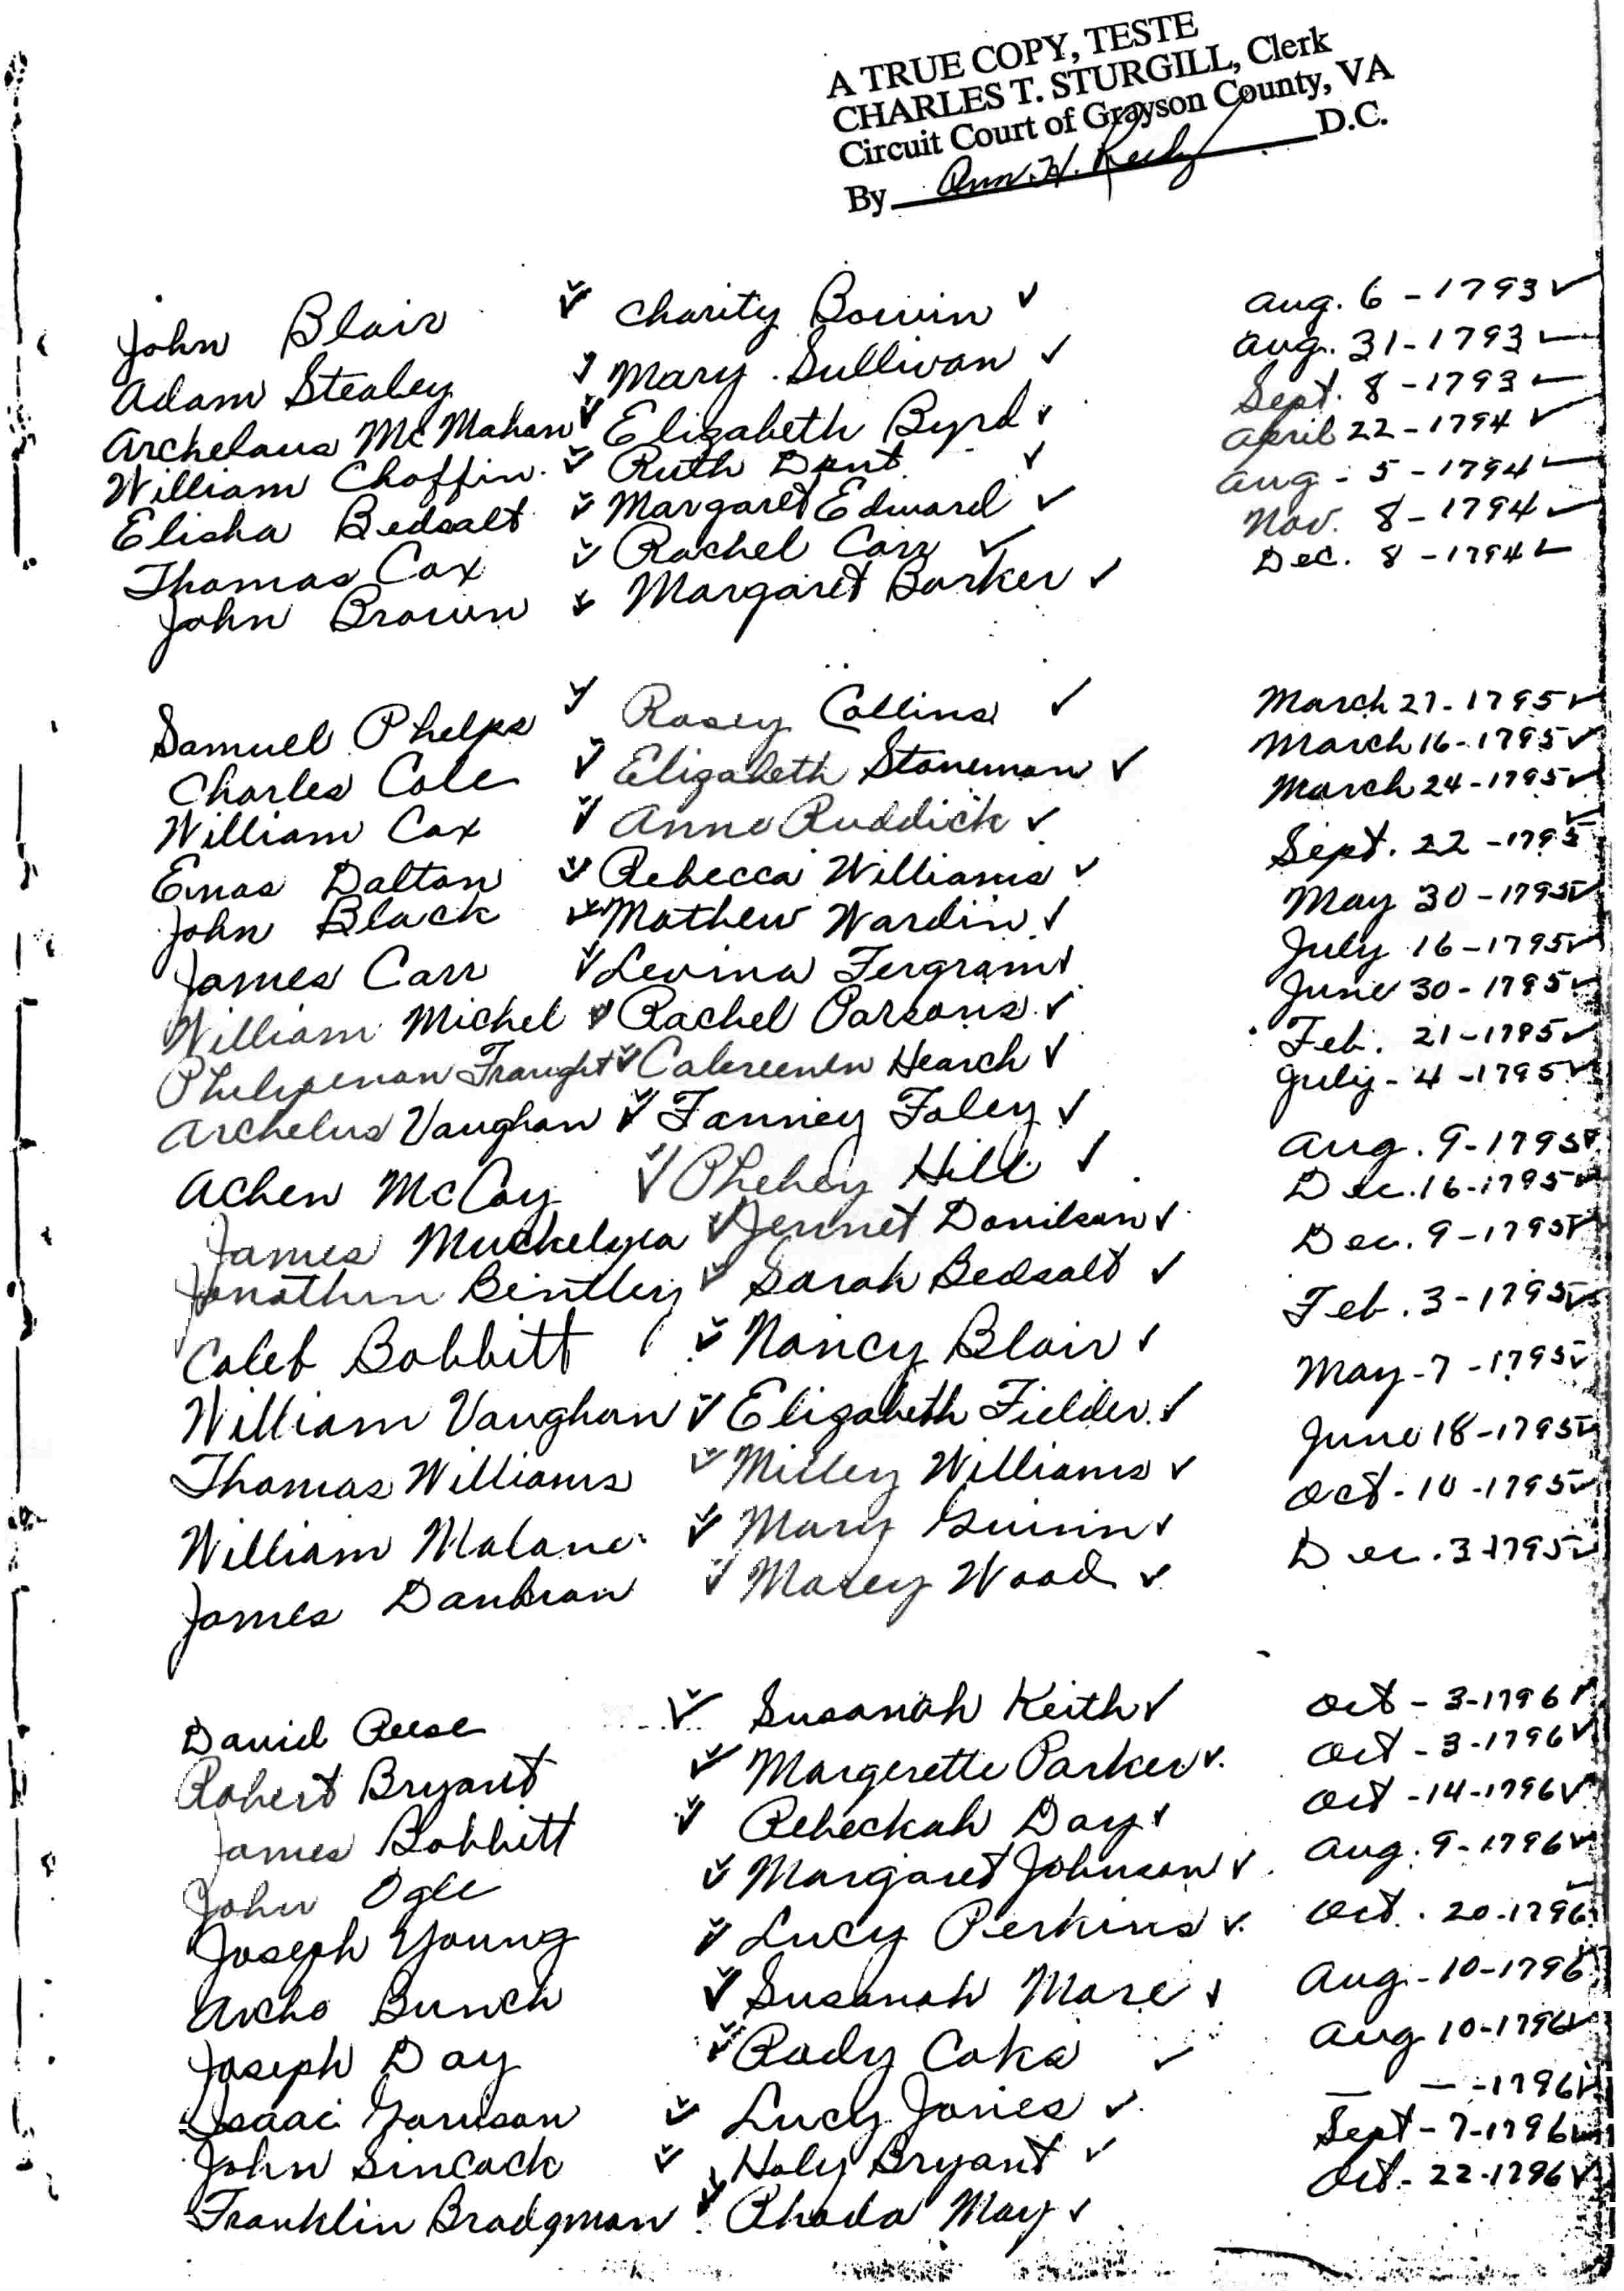 A TRUE COPY, TESTE
CHARLES T. STURGILL, Clerk
Circuit Court of Grayson County, VA
By Ann. H. D.C.
John Blair Charity Bowin Aug. 6 - 1793
Adam Stealey Mary Sullivan Aug. 31 - 1793
Archelaus McMahan Elizabeth Byrd Sept. 8 - 1793
William Choffin Ruth Dent April 22 - 1794
Elisha Bedsalt Margaret Edward Aug - 5 - 1794
Thomas Cox Rachel Carr Nov. 8 - 1794
John Brown Margaret Barker Dec. 8 - 1794
Samuel Phelps Rosey Collins March 27 - 1795
Charles Cole Elizabeth Stoneman March 16 - 1795
William Cox Anne Ruddick March 24 - 1795
Enos Dalton Rebecca Williams Sept. 22 - 1795
John Black Mathew Wardin May 30 - 1795
James Carr Levina July 16 - 1795
William Michel Rachel Parsons June 30 - 1795
Fraught Hearch Feb. 21 - 1795
Archelus Vaughan Fanney Foley July - 4 - 1795
Achen McCoy Phebey Hill Aug. 9 - 1795
James Jennet Donilson Dec. 16 - 1795
Jonathan Bintley Sarah Bedsalt Dec. 9 - 1795
Caleb Bobbitt Nancy Blair Feb. 3 - 1795
William Vaughan Elizabeth Fielder May - 7 - 1795
Thomas Williams Milley Williams June 18 - 1795
William Malone Mary Guinn Oct - 10 - 1795
James Wood Dec. 3 - 1795
David Reese Susanah Keith Oct - 3 - 1796
Robert Bryant Margerette Parker Oct - 3 - 1796
James Bobbitt Rebeckah Day Oct - 14 - 1796
John Ogle Margaret Johnson Aug. 9 - 1796
Joseph Young Lucy Perkins Oct. 20 - 1796
Archo Bunch Susanah More Aug - 10 - 1796
Joseph Day Rody Coks Aug 10 - 1796
Isaac Garrison Lucy Jones — — - 1796
John Sincock Holy Bryant Sept - 7 - 1796
Franklin Bradgman Rhoda May Oct - 22 - 1796